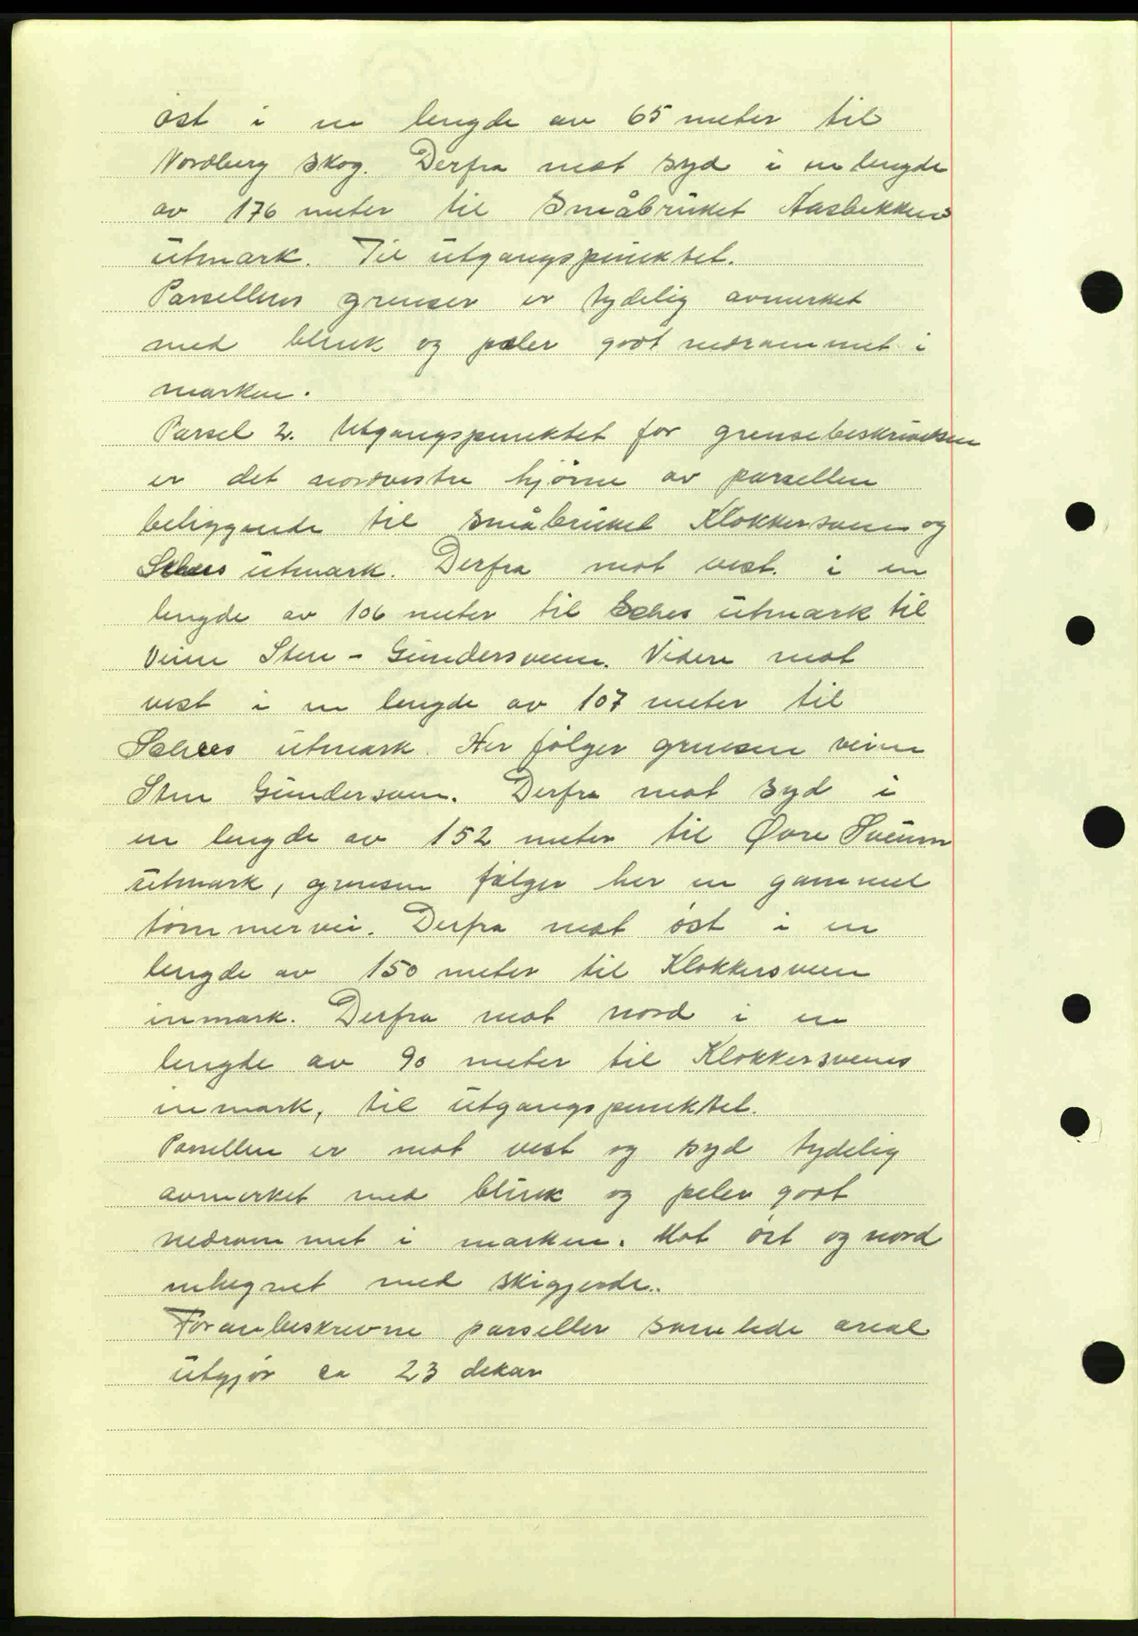 øst i en lengde av 65 meter til
Nordberg skog. Derfra mot syd i en lengde
av 176 meter til Småbruket Aasbekkens
utmark. Til utgangspunktet.
Parsellens grenser er tydelig avmerket
med blink og pæler godt nedrammet i
marken.
Parsel 2. Utgangspunktet for grensebeskrivelsen
er det nordvestre hjørne av parsellen
beliggende til småbruket Klokkersveen og
utmark. Derfra mot vest i en
lengde av 106 meter til utmark til
Veien Sten - Gundersveen. Videre mot
vest i en lengde av 107 meter til
utmark. Her følger grensen veien
Sten Gundersveen. Derfra mot syd i
en lengde av 152 meter til Øvre Sveum
utmark, grensen følger her en gammel
tømmervei. Derfra mot øst i en
lengde av 150 meter til Klokkersveen
inmark. Derfra mot nord i en
lengde av 90 meter til Klokkersveens
inmark, til utgangspunktet.
Parsellen er mot vest og syd tydelig
avmerket med blink og peler godt
nedrammet i marken. Mot øst og nord
inhegnet med skigjerde.
Foranbeskrevne parseller samlede areal
utgjør ca 23 dekar